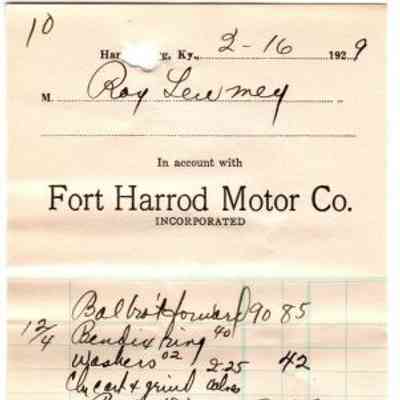 10
Har g, Ky., 2-16 1929
M. Roy
In account with
Fort Harrod Motor Co.
INCORPORATED
Bal bro't forward 90 85
12/4 Bendix ring 40
Washers 02 42
& grind 2.25